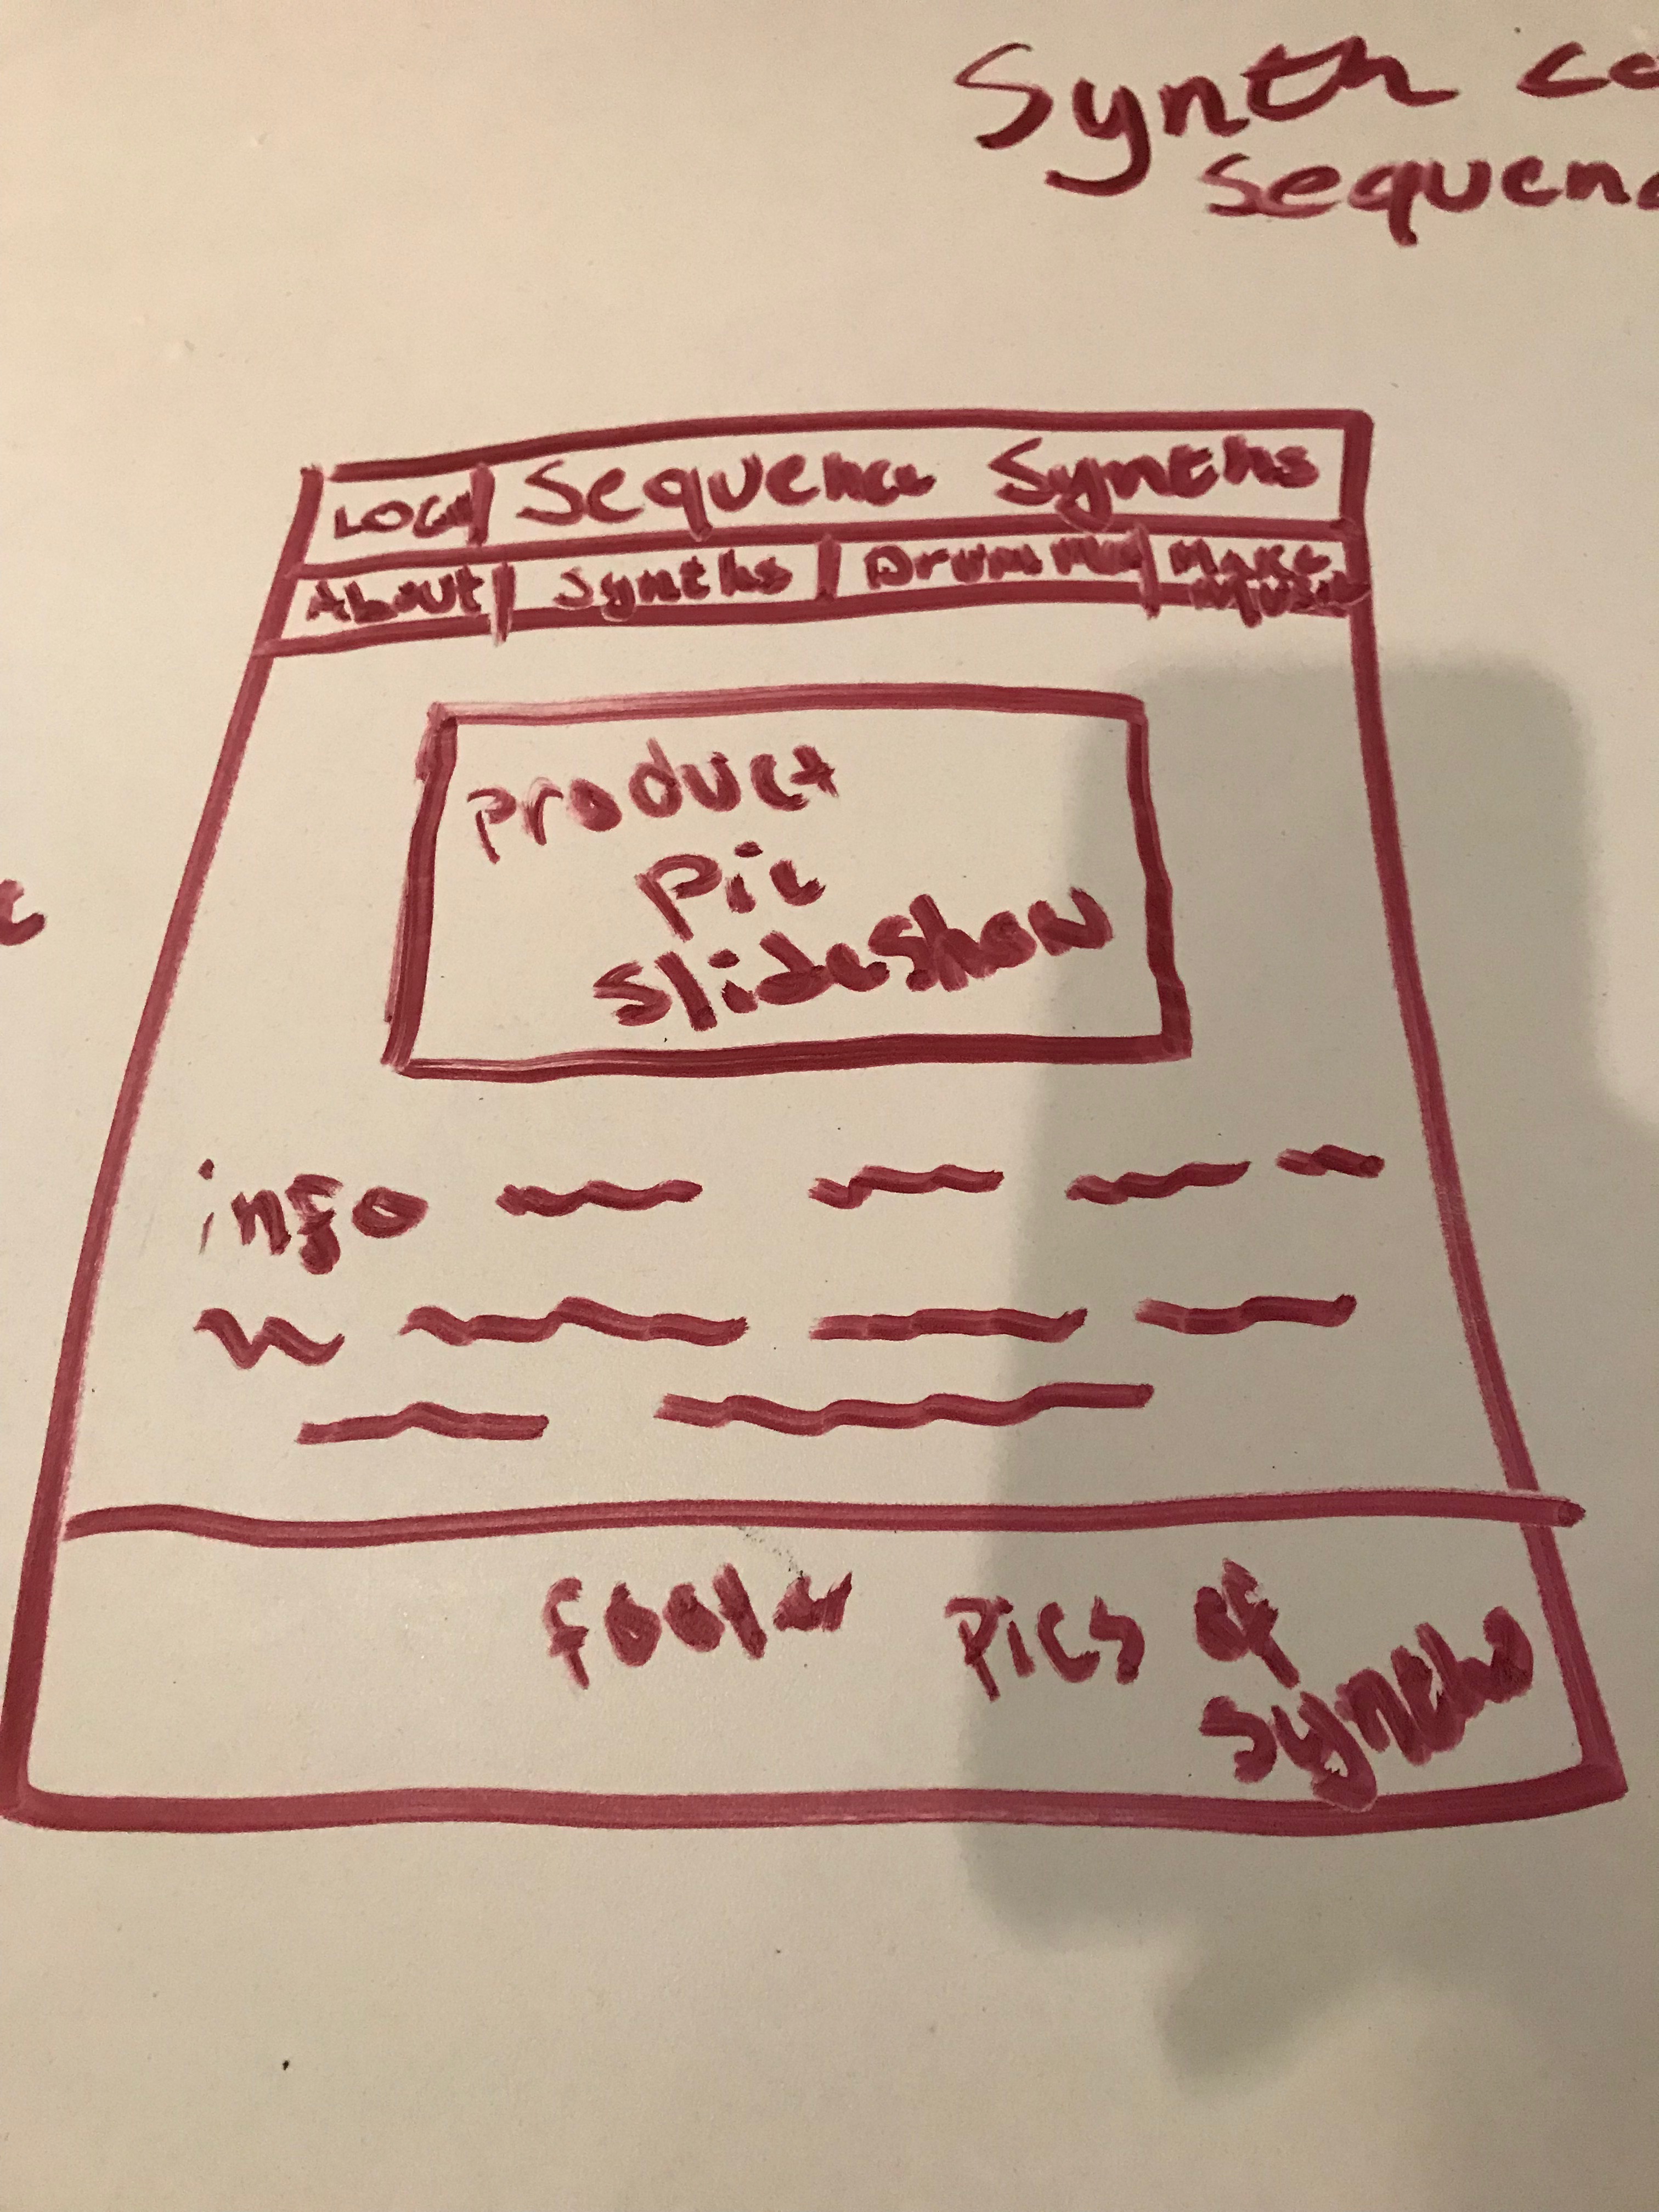 Synth
Sequence Synths
About Synths Drum Make
Music
product
pic
slideshow
info
footer pics of
synths